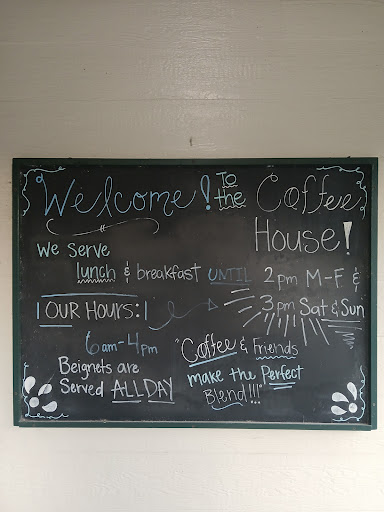 Welcome! To the Coffee House!
We Serve
lunch & breakfast UNTIL 2pm M-F &
3pm Sat & Sun
OUR HOURS:
6am-4pm
Beignets are
Served ALL DAY
"Coffee & Friends
make the Perfect
Blend!!!"